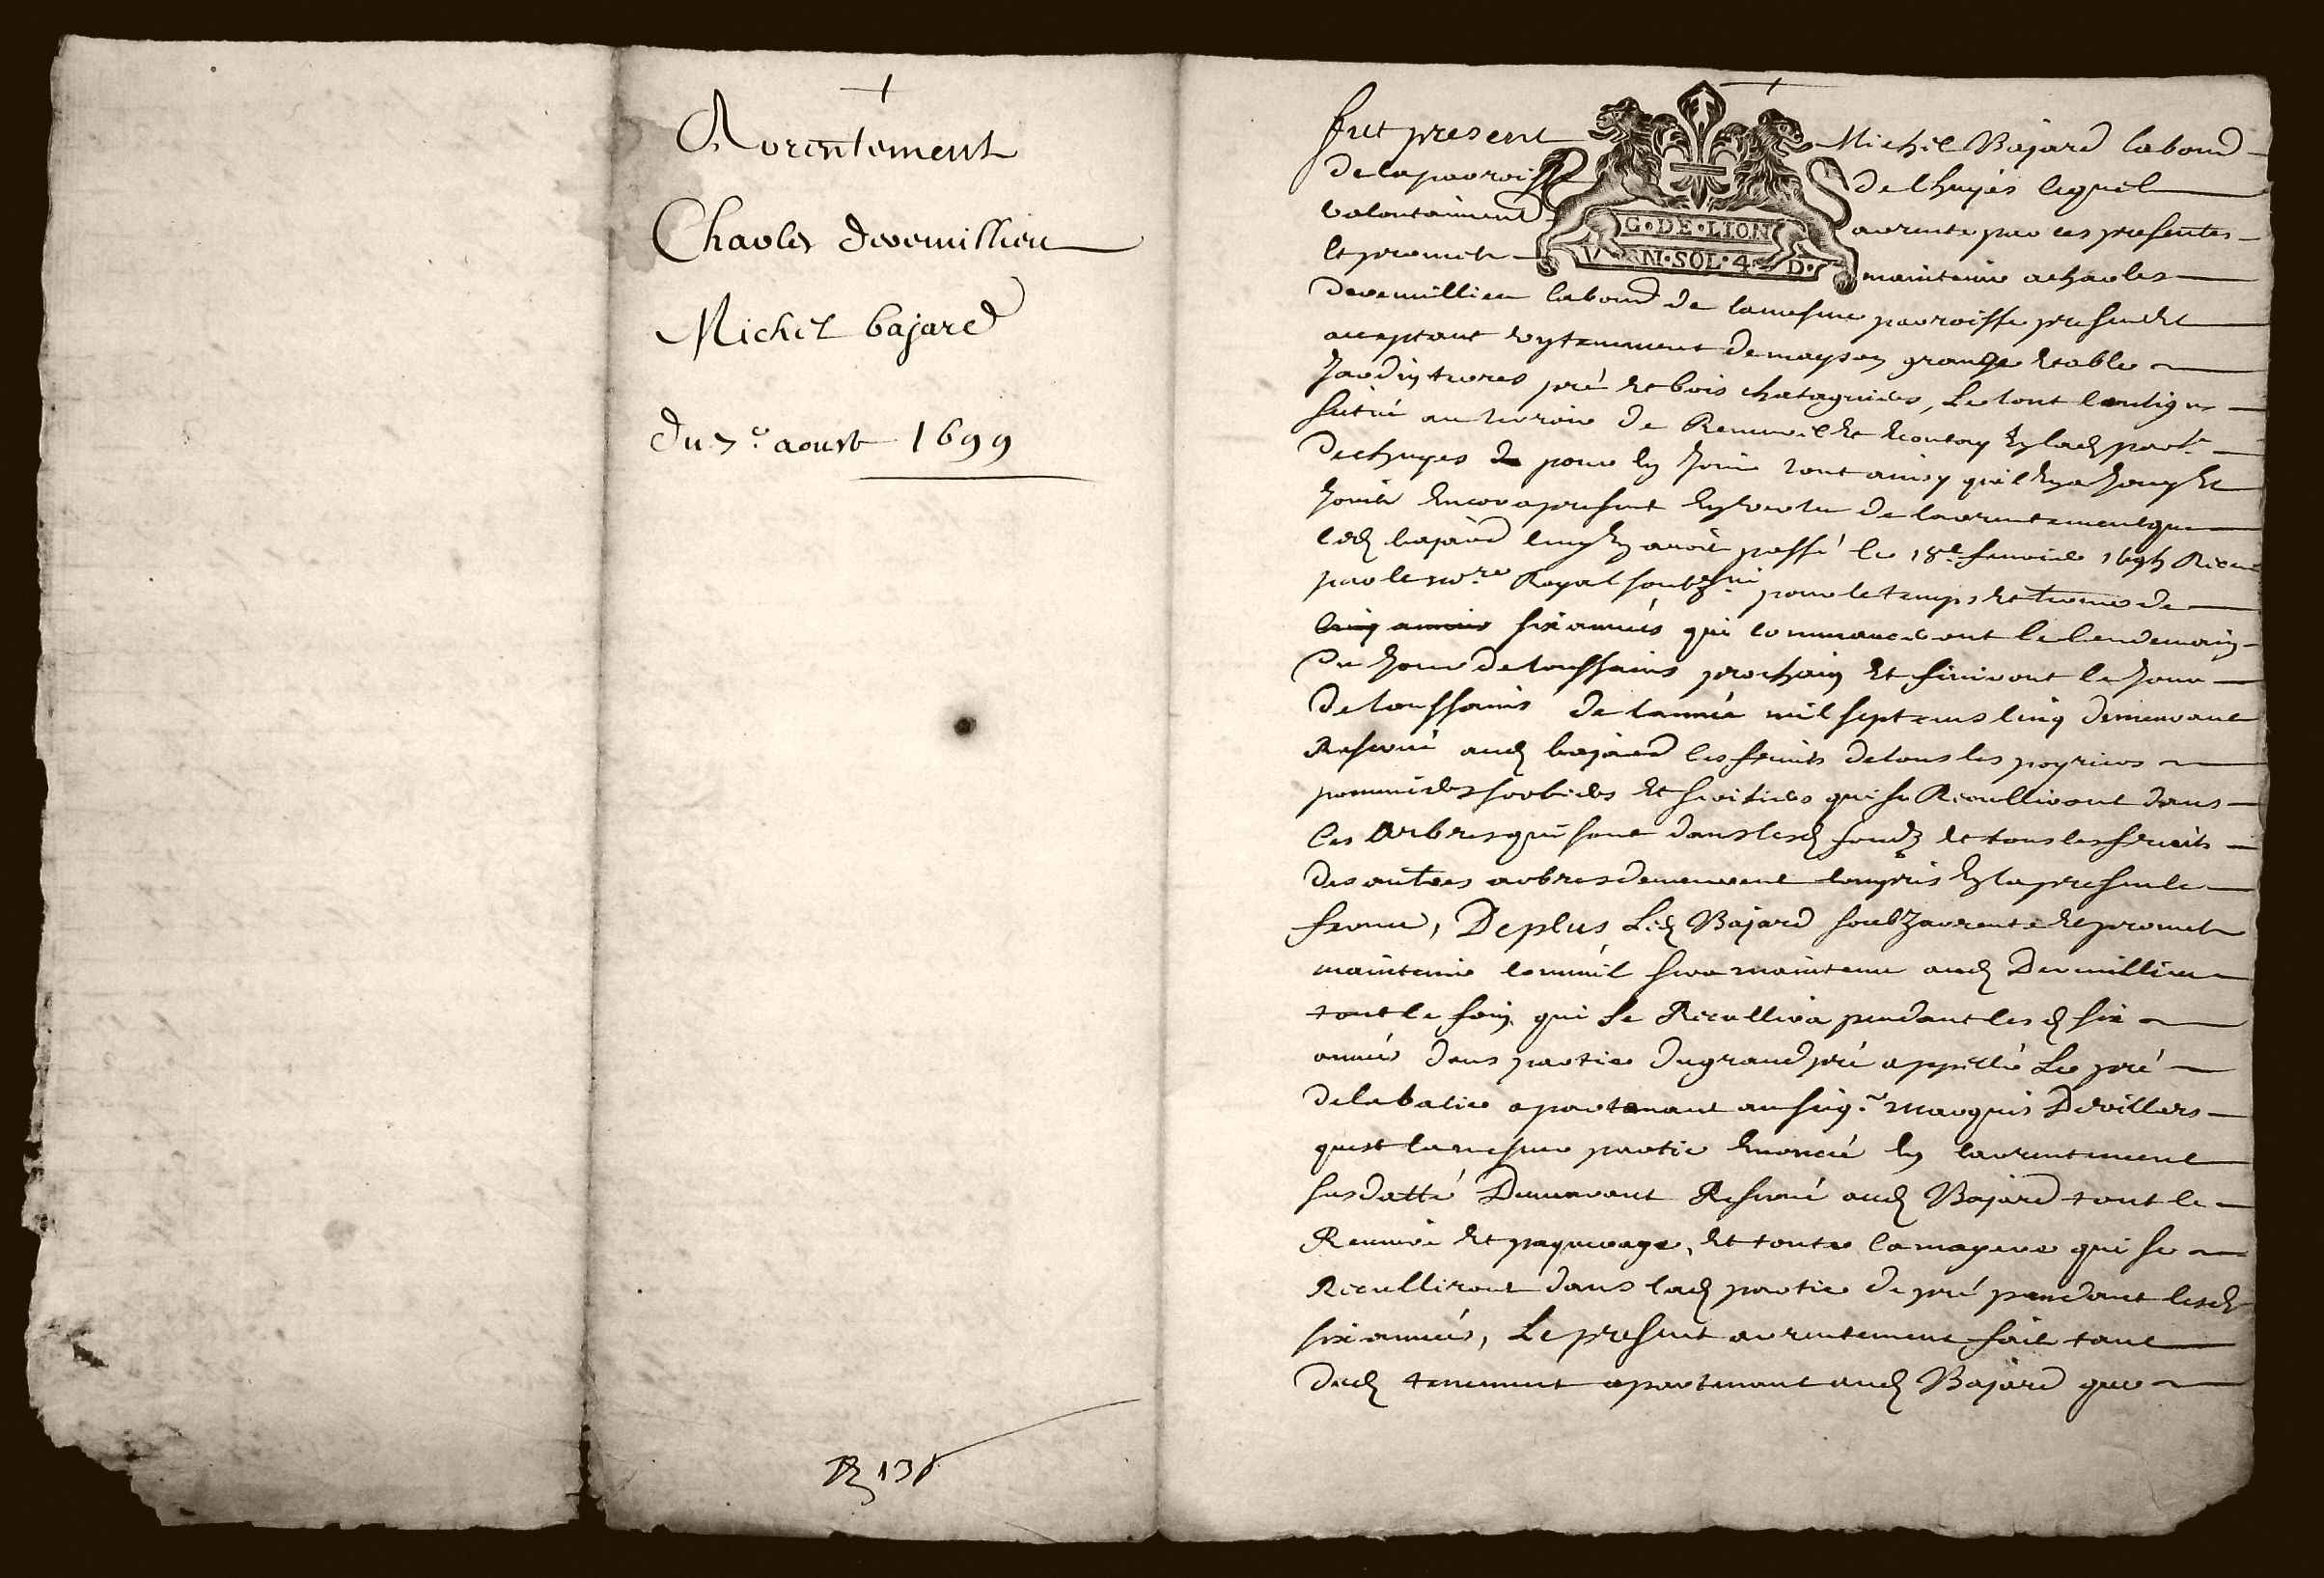 Arrentement
Charles devermillieu
Michel bajard
du 7.e aoust 1699
138
fut present Michel Bajard labour
de la parroisse de Chuyes lequel
volontairement arrente par ces presentes
et promet maintenir a Charles
devermillieu labour de la mesme parroisse present et
acceptant un tenement de mayson grange estable
jardin terres pré et bois chataigniers, Le tout contigus
scitué au terroire de et en lad parr.
de chuyes pour en jouir tout ainsy quil en a jouy et
jouit encor apresent en vertu de larrentement que
led bajard luy en avoit passé le 18e janvier 1695 Receu
par le no.re Royal soubz.né pour le temps et terme de
cinq années six années qui commanceront le lendemain
du jour de toussains prochain et finiront le jour
de toussains de lannée mil sept cens cinq demeurant
Reservé aud bajard les fruits de tous les poyriers
pommiers sorbiers et qui se Recullieront dans
les arbres qui sont dans lesd fondz et tous les fruits
des autres arbres demeurent compris en la presente
ferme, De plus Led Bajard soubzarrente et promet
maintenir comme il sera maintenu aud Dermillieu
tout le foin qui se Recullira pendant lesd six
années dans partie du grand pré appellé Le pré
de la batie apartenant au seig.r marquis Devillars
quest la mesme partie enoncée en larrentement
susdatté Demeurant Reservé aud Bajard tout le
Revivre et paquerage, et toute la que se
Reculliront dans lad partie de pré pendant lesd
six années, Le present arrentement fait tant
dud tenement apartenant aud Bajard que
G·DE·LION
VN·SOL·4·D·